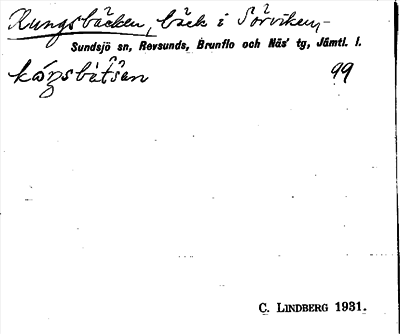 Kungsbäcken, bäck i Sörviken,-
Sundsjö sn, Revsunds, Brunflo och Näs' tg, Jämtl. l.
99
C. LINDBERG 1931.